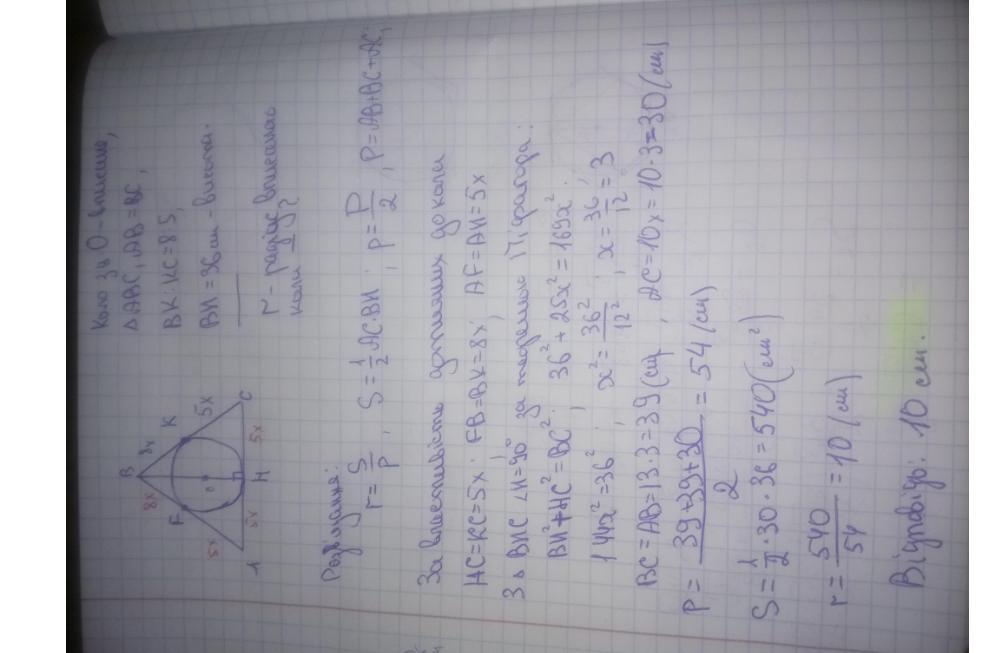 Коло з ц. О - вписане,
△ABC, AB = BC,
BK:KC = 8:5,
BH = 36 см - висота.
r - радіус вписаного
кола - ?
B
8x
8x
F
K
5x
5x
O
A
5x
H
5x
C
Розв'язання:
r = S/P, S = 1/2 AC·BH; p = P/2, P = AB+BC+AC;
За властивістю дотичних до кола
HC = KC = 5x; FB = BK = 8x; AF = AH = 5x
З △ BHC ∠H = 90° за теоремою Піфагора:
BH² + HC² = BC²; 36² + 25x² = 169x²;
144x² = 36²; x² = 36²/12²; x = 36/12 = 3
BC = AB = 13·3 = 39 (см), AC = 10x = 10·3 = 30 (см)
P = 39+39+30/2 = 54 (см)
S = 1/2·30·36 = 540 (см²)
r = 540/54 = 10 (см)
Відповідь: 10 см.